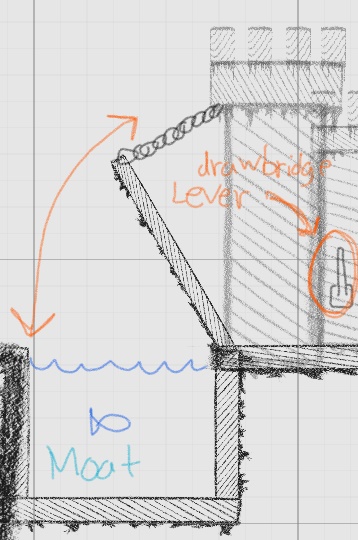 drawbridge
Lever
Moat